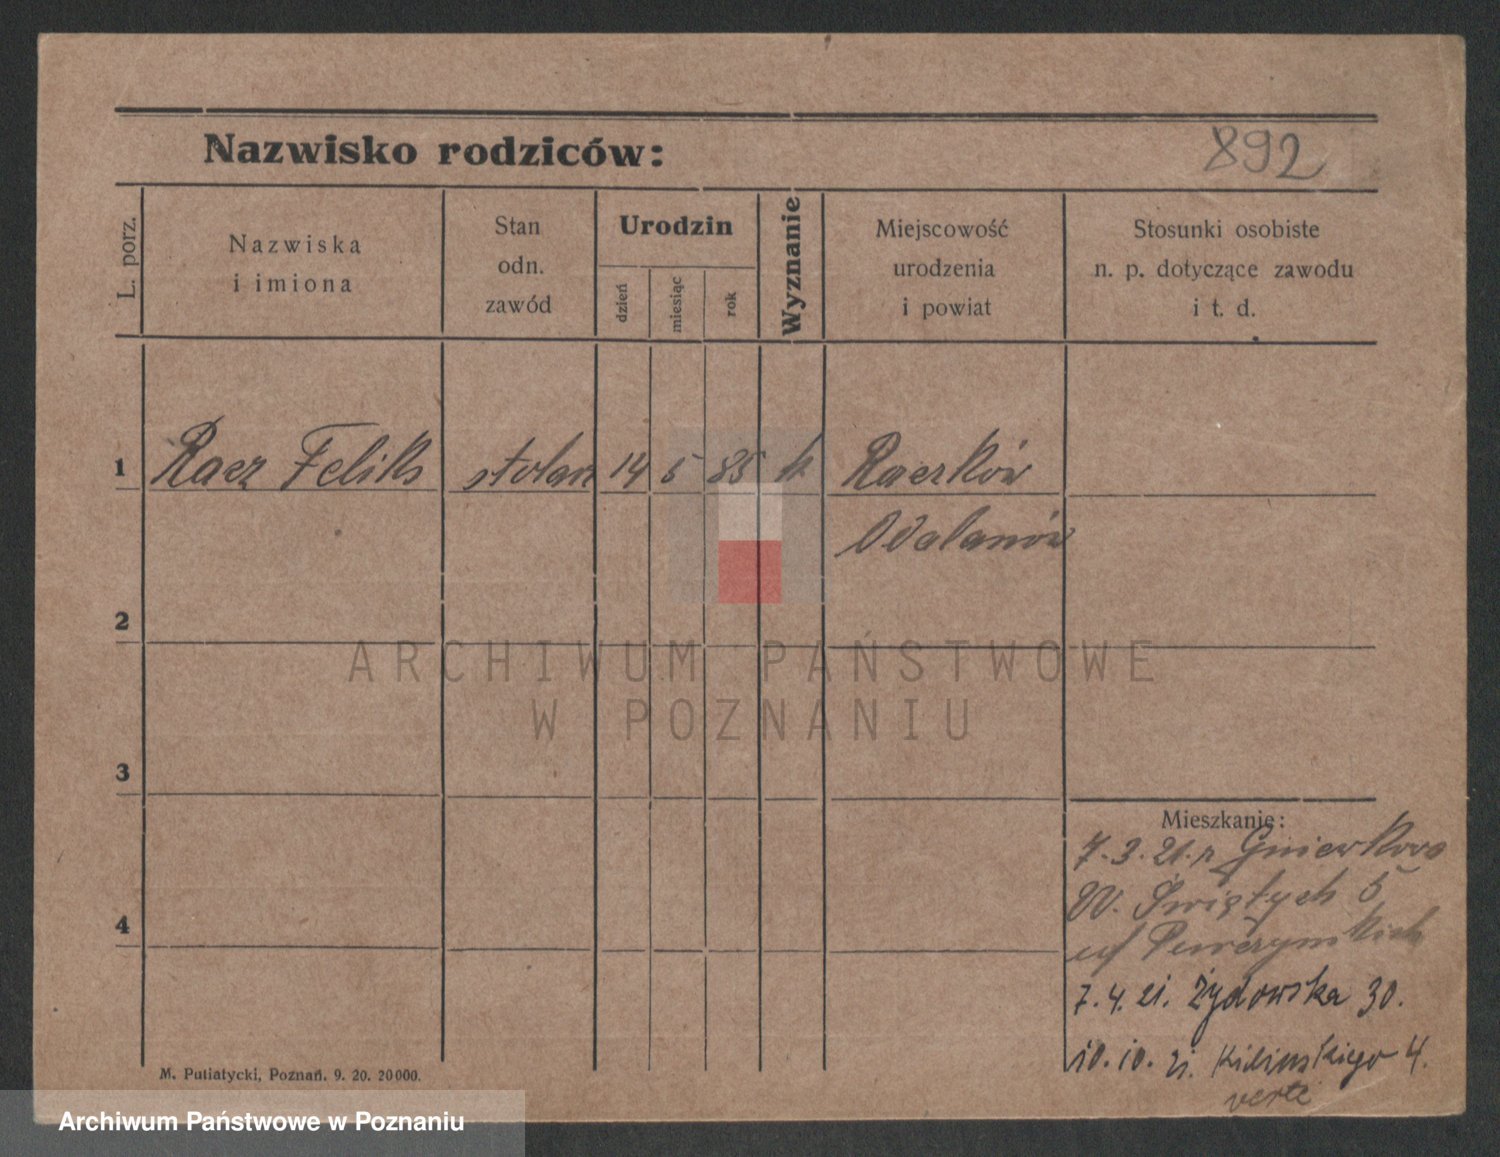 Nazwisko rodziców:
892
L. porz.
Nazwiska
i imiona
Stan
odn.
zawód
Urodzin
dzień
miesiąc
rok
Wyznanie
Miejscowość
urodzenia
i powiat
Stosunki osobiste
n. p. dotyczące zawodu
i t. d.
1 Racz Feliks stolarz 14 5 85 k Raczków
Odolanów
2
ARCHIWUM PAŃSTWOWE
W POZNANIU
3
Mieszkanie:
7.3.21. z Gniewkowo
W. Świętych 5
4
7.4.21. Żydowska 30.
10.10.21. Kilińskiego 4.
verte
M. Putiatycki, Poznań. 9. 20. 20000.
Archiwum Państwowe w Poznaniu